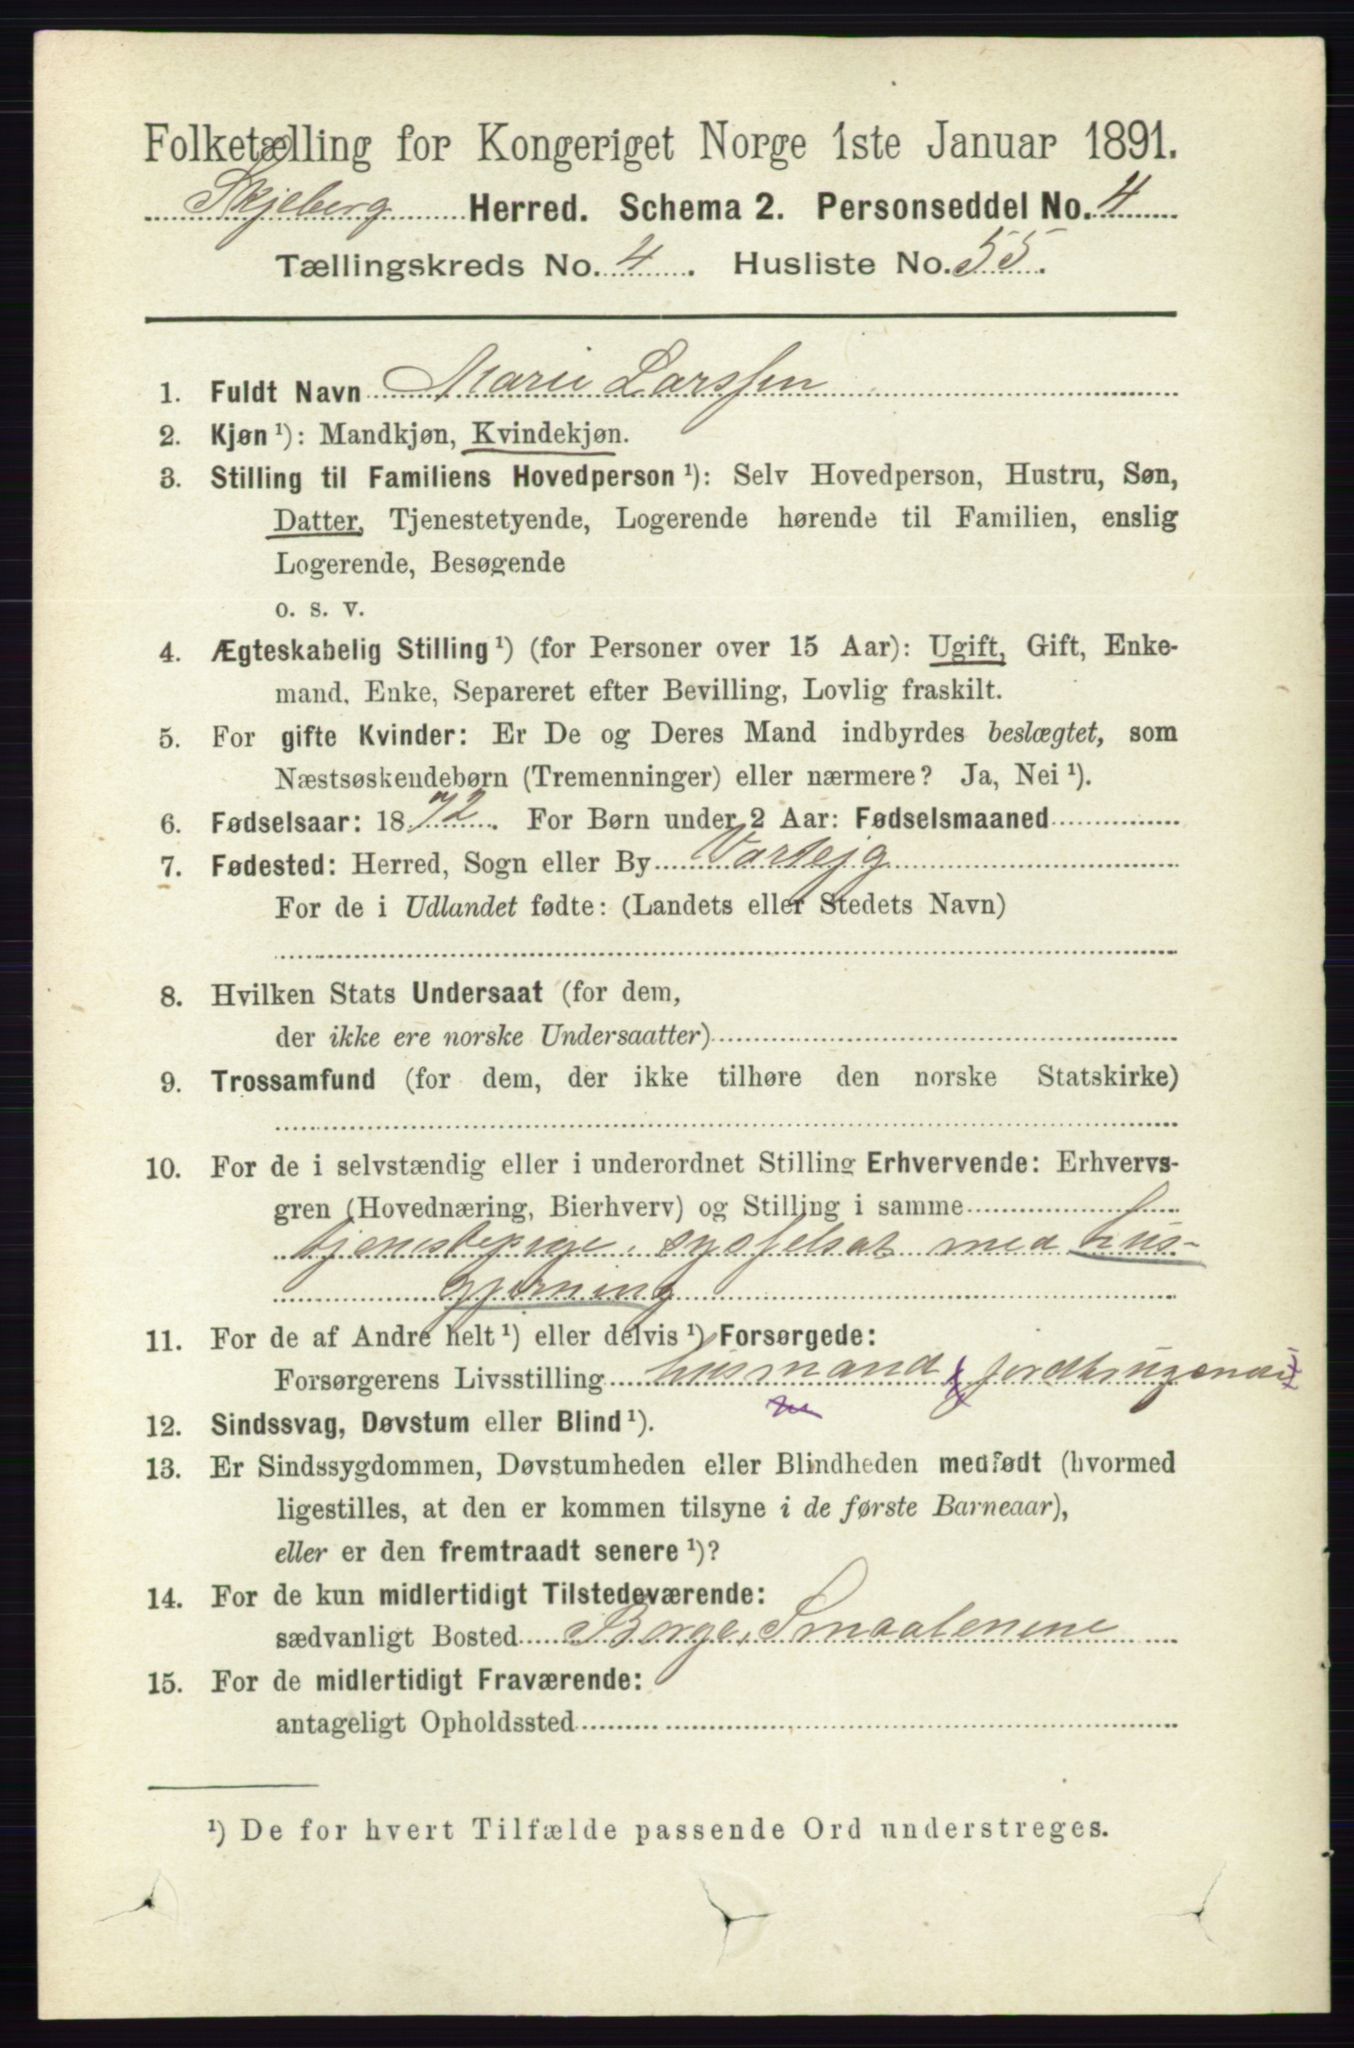 Folketælling for Kongeriget Norge 1ste Januar 1891.
Skjeberg Herred. Schema 2. Personseddel No. 4
Tællingskreds No. 4. Husliste No. 55.
1. Fuldt Navn Marie Larssen
2. Kjøn ¹): Mandkjøn, Kvindekjøn.
3. Stilling til Familiens Hovedperson ¹): Selv Hovedperson, Hustru, Søn,
Datter, Tjenestetyende, Logerende hørende til Familien, enslig
Logerende, Besøgende
o. s. v.
4. Ægteskabelig Stilling ¹) (for Personer over 15 Aar): Ugift, Gift, Enke-
mand, Enke, Separeret efter Bevilling, Lovlig fraskilt.
5. For gifte Kvinder: Er De og Deres Mand indbyrdes beslægtet, som
Næstsøskendebørn (Tremenninger) eller nærmere? Ja, Nei ¹).
6. Fødselsaar: 1872. For Børn under 2 Aar: Fødselsmaaned
7. Fødested: Herred, Sogn eller By Varteig
For de i Udlandet fødte: (Landets eller Stedets Navn)
8. Hvilken Stats Undersaat (for dem,
der ikke ere norske Undersaatter)
9. Trossamfund (for dem, der ikke tilhøre den norske Statskirke)
10. For de i selvstændig eller i underordnet Stilling Erhvervende: Erhvervs-
gren (Hovednæring, Bierhverv) og Stilling i samme
tjenestepige, sysselsat med hus-
gjerning
11. For de af Andre helt ¹) eller delvis ¹) Forsørgede:
Forsørgerens Livsstilling husmand jordbrugende
12. Sindssvag, Døvstum eller Blind ¹).
13. Er Sindssygdommen, Døvstumheden eller Blindheden medfødt (hvormed
ligestilles, at den er kommen tilsyne i de første Barneaar),
eller er den fremtraadt senere ¹)?
14. For de kun midlertidigt Tilstedeværende:
sædvanligt Bosted Borge, Smaalenene
15. For de midlertidigt Fraværende:
antageligt Opholdssted
¹) De for hvert Tilfælde passende Ord understreges.